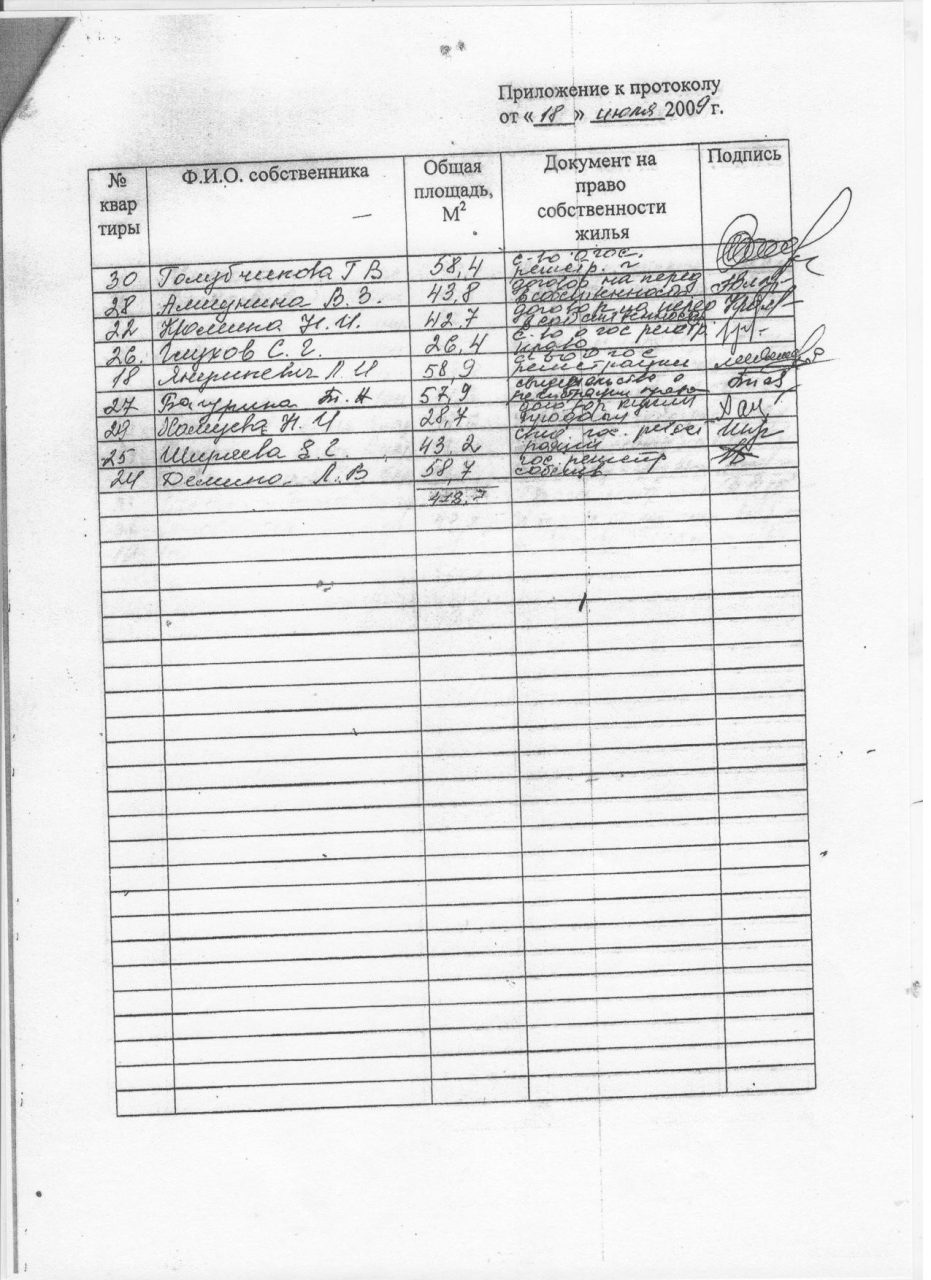 Приложение к протоколу
от «18» июля 2009 г.
№ квартиры Ф.И.О. собственника Общая площадь, М² Документ на право собственности жилья Подпись
30 Голубчикова Г В 58,4 с-во о гос. регистр.
28 В. З. 43,8 договор на перед в собственность
22 Н. И. 42,7 договор на перед в собственность
26. Глухов С. Г. 26,4 с-во о гос регистр. право
18 Л И 58,9 с-во о гос регистрации
27 Т. Н 57,9 свидетельство о регистрации права
29 Н. И 28,7 договор купли продажи
25 Ширяева 43,2 свид. гос. регист рации
24 Демина Л. В 58,7 гос. регистр собств.
418,7